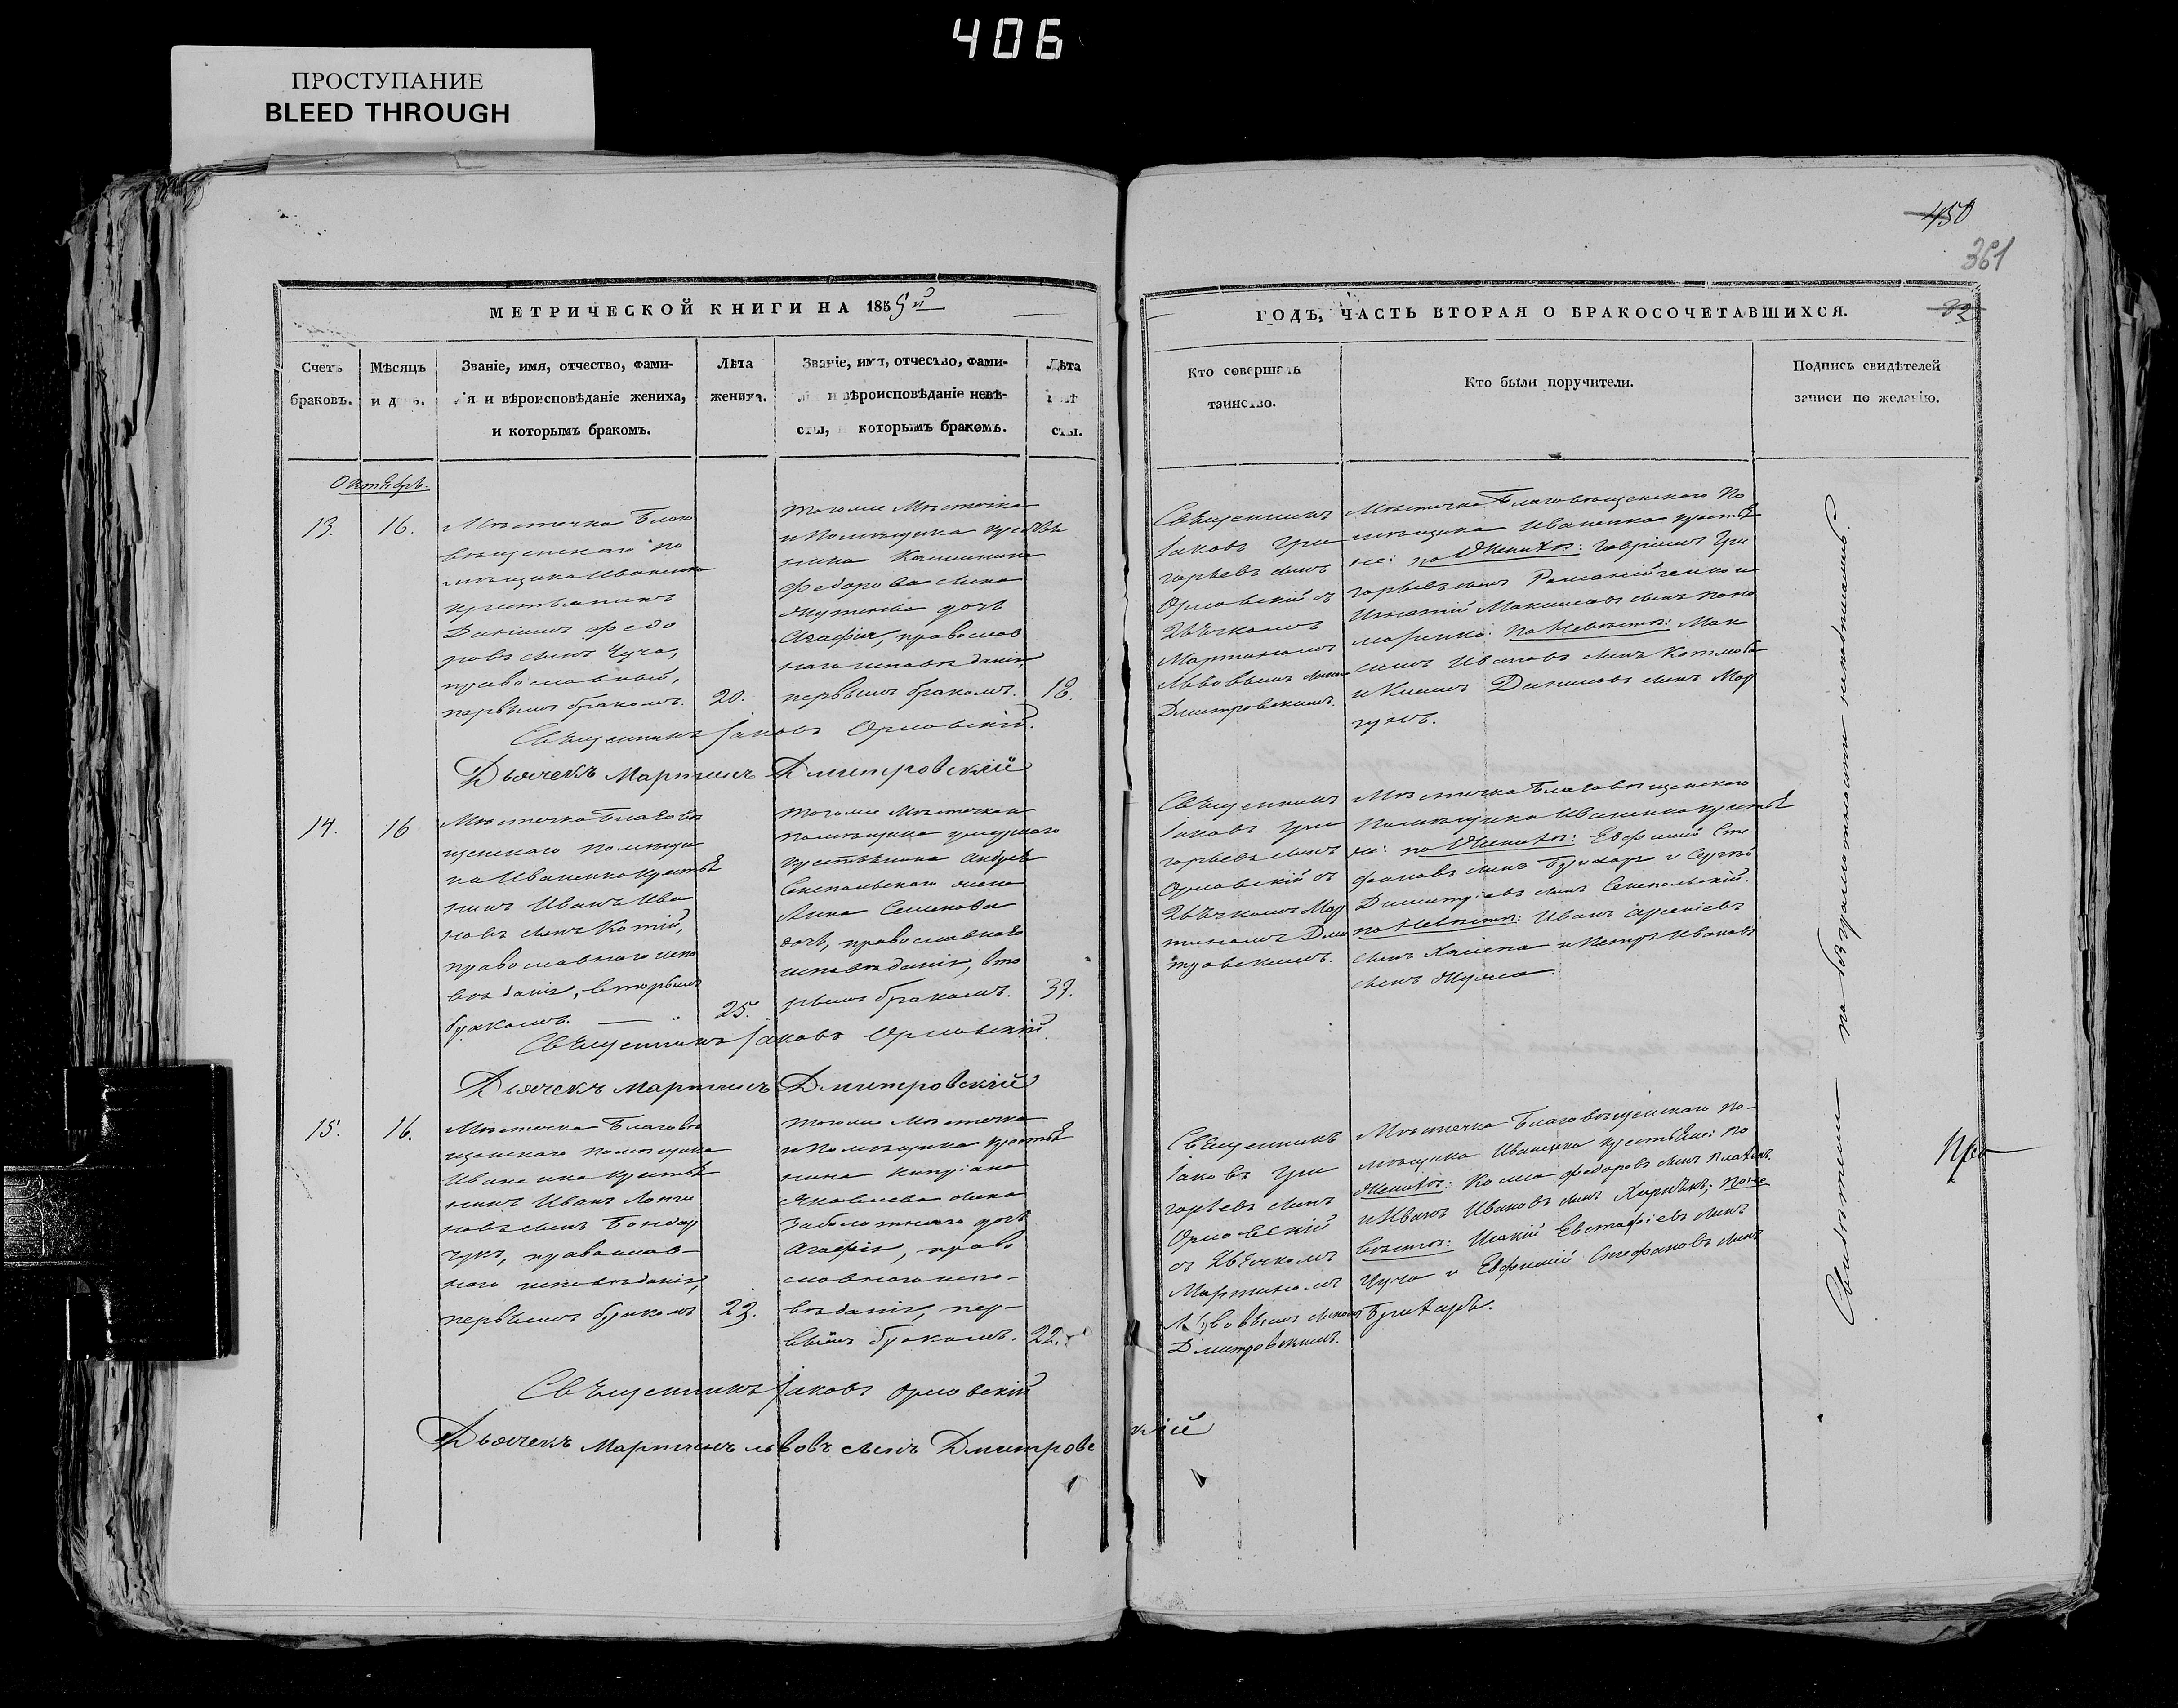 406
ПРОСТУПАНИЕ
BLEED THROUGH
450
361
МЕТРИЧЕСКОЙ КНИГИ НА 1855й
ГОДЪ, ЧАСТЬ ВТОРАЯ О БРАКОСОЧЕТАВШИХСЯ.
Счетъ
браковъ.
Мѣсяцъ
и день.
Званіе, имя, отчество, фами-
лія и вѣроисповѣданіе жениха,
и которымъ бракомъ.
Лѣта
жениха.
Званіе, имя, отчество, фами-
лія и вѣроисповѣданіе невѣ-
сты, и которымъ бракомъ.
Лѣта
невѣ
сты.
Кто совершалъ
таинство.
Кто были поручители.
Подпись свидѣтелей
записи по желанію.
Октябрь.
13.
16.
Мѣстечка Благо
вѣщенскаго по
мѣщика Иваненка
крестьянинъ
Даніилъ Федо
ровъ сынъ Чуча,
православный,
первымъ бракомъ.
20.
тогоже Мѣстечка
и Помѣщика крестья
нина
Федорова сына
дочь
Агафія, православ
наго исповѣданія,
первымъ бракомъ.
18.
Священникъ
Іаковъ Гри
горьевъ сынъ
Орловскій съ
Дьячкомъ
Мартиномъ
Львовымъ сыномъ
Дмитровскимъ.
Мѣстечка Благовѣщенскаго По
мѣщика Иваненка крестья
не: по Женихѣ: Гавріилъ Гри
горьевъ сынъ Романійченко и
Игнатій Максимовъ сынъ Поно
маренко: по Невѣстѣ: Мак
симъ Ивановъ сынъ
и Даниловъ сынъ
Священникъ Іаковъ Орловскій.
Дьячекъ Мартинъ Дмитровскій
14.
16
Мѣстечка Благовѣ
щенскаго помѣщи
ка Иваненка крестья
нинъ Иванъ Ива
новъ сынъ Котій,
православнаго испо
вѣданія, вторымъ
бракомъ.
25.
тогоже Мѣстечка и
помѣщика умершаго
крестьянина Андрея
Сенепольскаго жена
Анна Семенова
дочь, православнаго
исповѣданія, вто
рымъ бракомъ.
33.
Священникъ
Іаковъ Гри
горьевъ сынъ
Орловскій съ
Дьячкомъ Мар
тиномъ Дми
тровскимъ.
Мѣстечка Благовѣщенскаго
Помѣщика Иваненка крестья
не: по Женихѣ: Евфимій Сте
фановъ сынъ Бунчаръ и Сергій
Димитріевъ сынъ Сенепольскій.
по Невѣстѣ: Иванъ Арсеніевъ
сынъ и Петръ Ивановъ
сынъ
Священникъ Іаковъ Орловскій.
Дьячекъ Мартинъ Дмитровскій
15.
16.
Мѣстечка Благовѣ
щенскаго помѣщика
Иваненка крестья
нинъ Иванъ Логи
новъ сынъ Бондар
чукъ, православ-
наго исповѣданія,
первымъ бракомъ
23.
тогоже Мѣстечка
и Помѣщика крестья
нина Кипріана
Яковлева сына
Заболотнаго дочь
Агафія, право
славнаго испо-
вѣданія, пер-
вымъ бракомъ.
22.
Священникъ
Іаковъ Гри
горьевъ сынъ
Орловскій
съ Дьячкомъ
Мартиномъ
Львовымъ сыномъ
Дмитровскимъ.
Мѣстечка Благовѣщенскаго По-
мѣщика Иваненка крестьяне: по
Женихѣ: Косма Федоровъ сынъ
и Иванъ Ивановъ сынъ по не
вѣстѣ: Исакій Евстафіевъ сынъ
Чуча и Евфимій Стефановъ сынъ
Священникъ Іаковъ Орловскій
Дьячекъ Мартинъ Львовъ сынъ Дмитровскій
Свидѣтели по безграмотности неподписались.